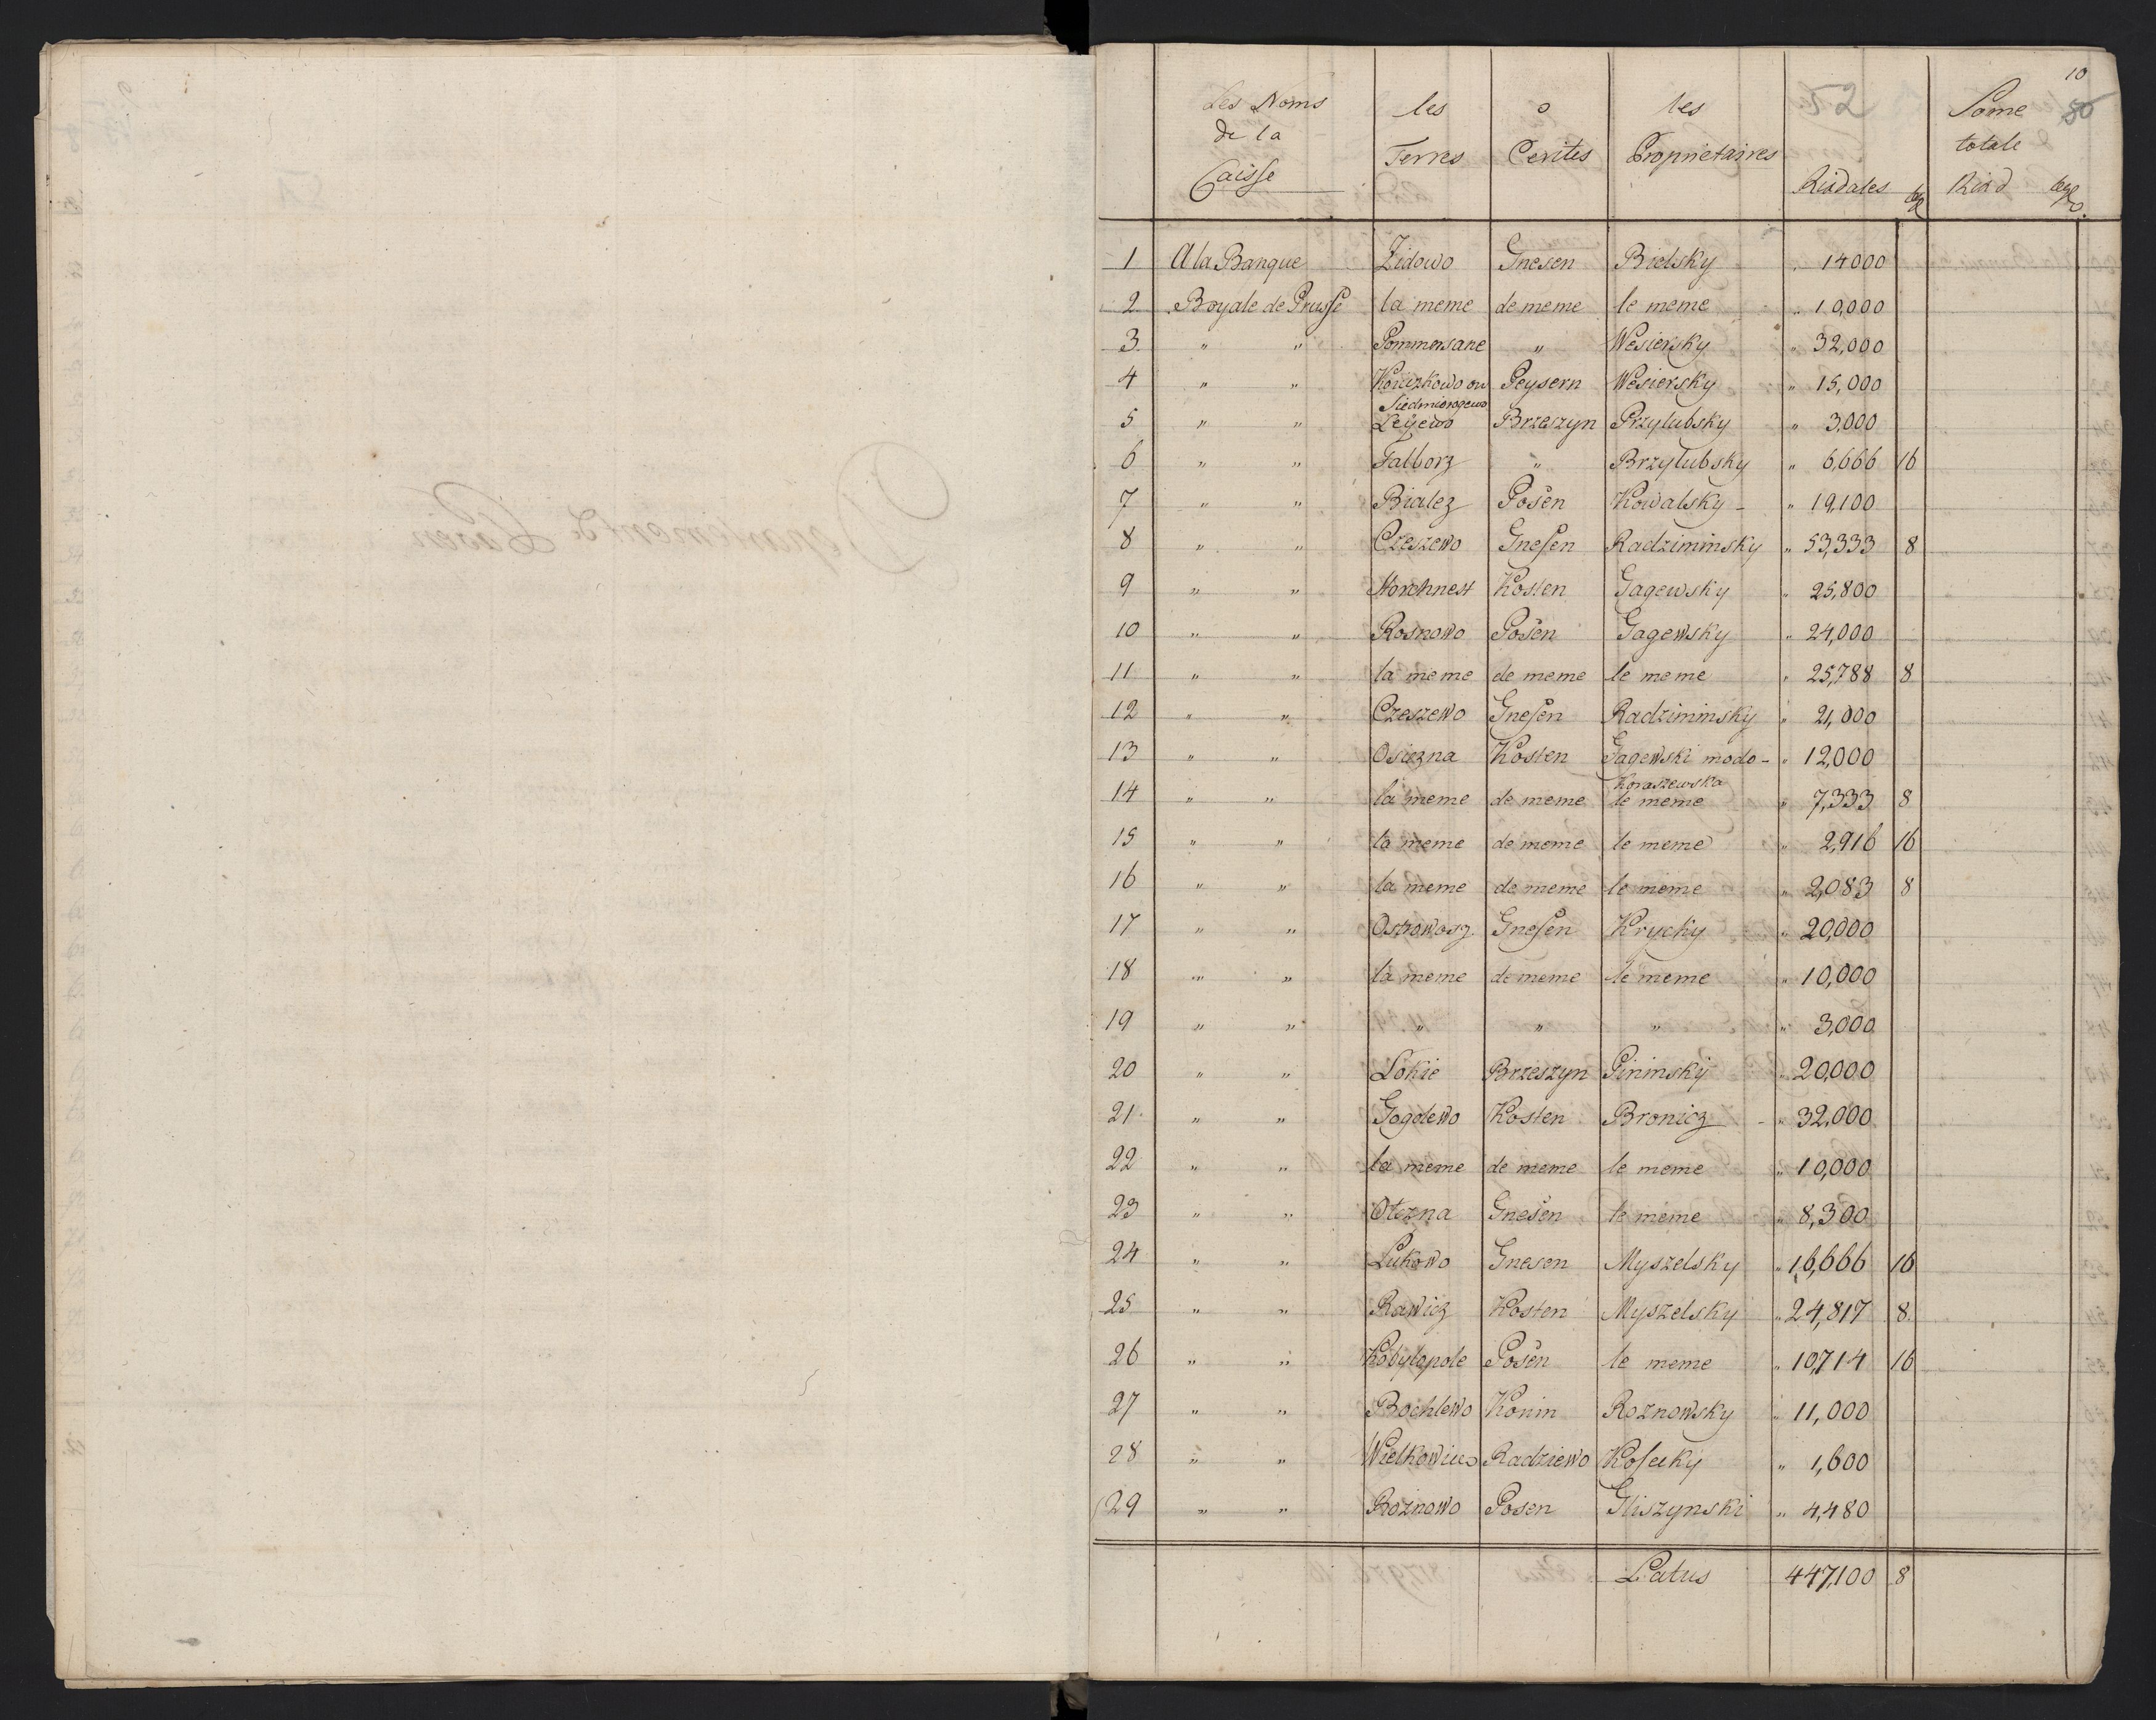 10
Les Noms de la Caisse | les Terres | Cerites | les Propriétaires | 52 Risdales | Some totale Risd | 50
1 A la Banque Zidowo Gnesen Bielsky " 14000
2 Royale de Prusse la meme de meme le meme " 10,000
3 " " Pommersane " Wesiersky " 32,000
4 " " Peysern Wesiersky " 15,000
Siedmiorogewo
5 " " Leyewo Brzeszyn Przylubsky " 3,000
6 " " Falborz " Brzylubsky " 6,666 16
7 " " Bialez Posen Kowalsky " 19,100
8 " " Czeszewo Gnesen Radziminsky " 53,333 8
9 " " Storchnest Kosten Gagewsky " 25,800
10 " " Rosnowo Posen Gagewsky " 24,000
11 " " la meme de meme le meme " 25,788 8
12 " " Czeszewo Gnesen Radziminsky " 21,000
13 " " Osiezna Kosten Gagewski modo - " 12,000
Koraszewska
14 " " la meme de meme le meme " 7,333 8
15 " " la meme de meme le meme " 2,916 16
16 " " la meme de meme le meme " 2,083 8
17 " " Gnesen Krycky " 20,000
18 " " la meme de meme le meme " 10,000
19 " " " " " " 3,000
20 " " Lokie Brzeszyn Pininsky " 20,000
21 " " Gogolewo Kosten Bronicz - " 32,000
22 " " la meme de meme le meme " 10,000
23 " " Otezna Gnesen le meme " 8,300
24 " " Lukowo Gnesen Myszelsky " 16,666 16
25 " " Rawicz Kosten Myszelsky " 24,817 8
26 " " Kobylopole Posen le meme " 10,714 16
27 " " Bochlewo Konin Roznowsky " 11,000
28 " " Radziewo " 1,600
29 " " Roznowo Posen Gliszynski " 4,480
Latus 447,100 8